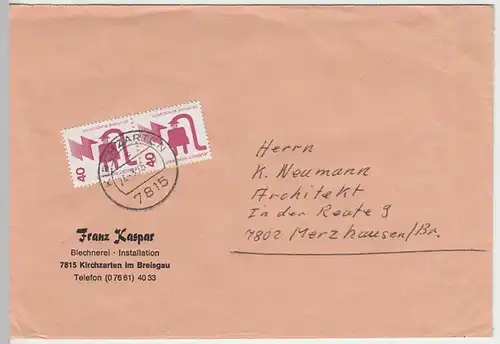 40
40
KIRCHZARTEN
7815
Herrn
K. Neumann
Architekt
In der Reute 9
7802 Merzhausen/Br.
Franz Kaspar
Blechnerei · Installation
7815 Kirchzarten im Breisgau
Telefon (0 76 61) 40 33